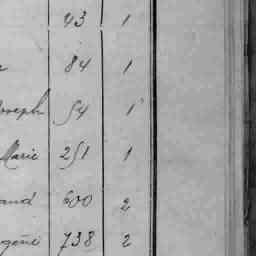 43 1
84 1
Joseph 54 1
Marie 251 1
and 600 2
gène 738 2